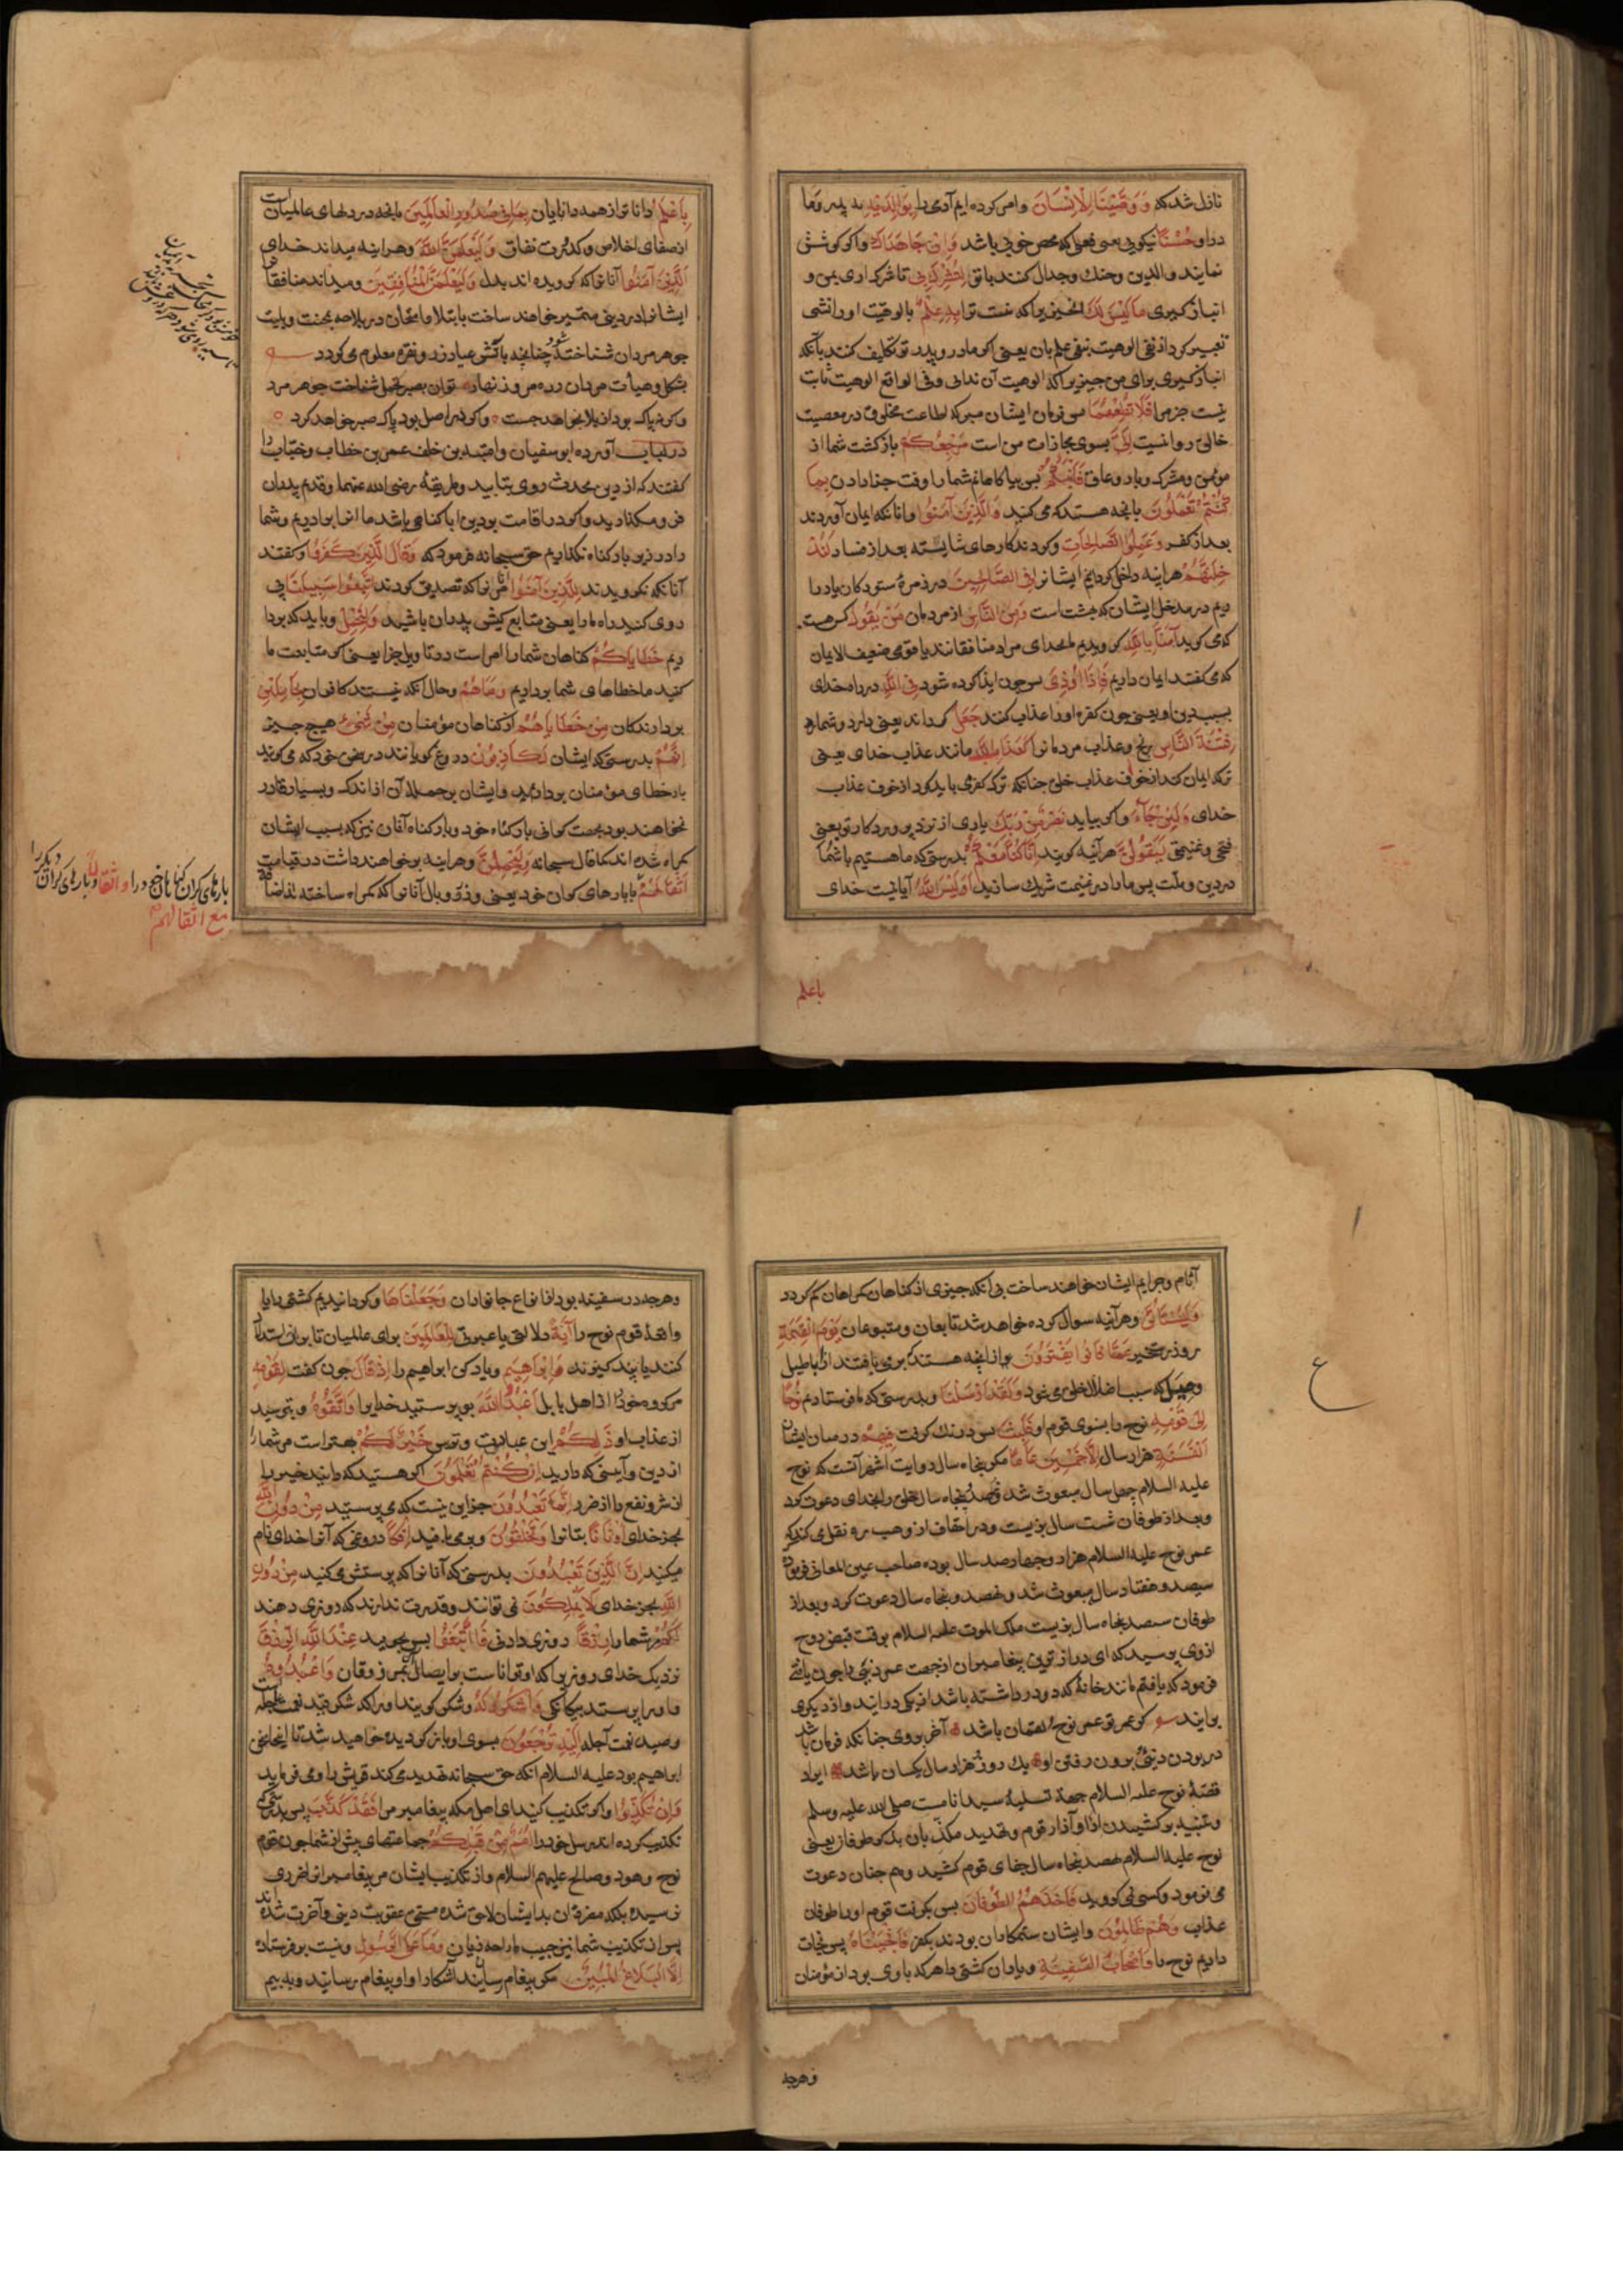 نازل شد که وَوَصَّيْنَا الْاِنْسَانَ وامر کرده ایم آدمی را بِوَالِدَيْهِ به پدر وما
در او حُسْنًا نیکویی یعنی فعلی که محض خوبی باشد وَاِنْ جَاهَدَاكَ واکر کوشش
نمایند والدین وجنک وجدال کنند با تو لِتُشْرِكَ بِي تا شرک اری بمن و
انباز کیری مَا لَيْسَ لَكَ انچیزیرا که نیست ترا بِهِ عِلْمٌ بالوهیت او دانشی
تعبیر کرد از نفی الوهیت بنفی علم بان یعنی اکر مادر وپدر تو تکلیف کنند بآنکه
انباز کیری برای من چیزیرا که الوهیت آن ندانی وفی الواقع الوهیت ثابت
نیست جز مرا فَلَا تُطِعْهُمَا پس فرمان ایشان مبر که اطاعت مخلوق در معصیت
خالق روا نیست اِلَيَّ بسوی مجازات من است مَرْجِعُكُمْ بازکشت شما از
مؤمن ومشرک وبار وعاق فَاُنَبِّئُكُمْ پس بیاکاهانم شما را وقت جزا دادن بِمَا
كُنْتُمْ تَعْمَلُونَ بانچه هستید که می کنید وَالَّذِينَ آمَنُوا وانانکه ایمان آوردند
بعد از کفر وَعَمِلُوا الصَّالِحَاتِ وکردند کارهای شایسته بعد از فساد لَنُدْ
خِلَنَّهُمْ هراینه داخل کردانیم ایشانرا فِي الصَّالِحِينَ در زمرهٔ ستودکان یا درا
ریم در مدخل ایشان که بهشت است وَمِنَ النَّاسِ از مردمان مَنْ يَقُولُ کس هست
که می کوید آمَنَّا بِاللهِ کرویدیم بخدای مراد منافقانند یا قومی ضعیف الایمان
که می کفتند ایمان داریم فَاِذَا اُوذِيَ پس چون ایذا کرده شود فِي اللهِ در راه خدای
بسبب دین او یعنی چون کفره اورا عذاب کنند جَعَلَ کرداند یعنی دارد وشمارد
فِتْنَةَ النَّاسِ رنج وعذاب مردمانرا كَعَذَابِ اللهِ مانند عذاب خدای یعنی
ترک ایمان کند از خوف عذاب خلق چنانکه ترک کفر می باید کرد از خوف عذاب
خدای وَلَئِنْ جَاءَ واکر بیاید نَصْرٌ مِنْ رَبِّكَ یاری از نزد پروردکار تو یعنی
فتحی وغنیمتی لَيَقُولُنَّ هرآینه کویند اِنَّا كُنَّا مَعَكُمْ بدرستی که ما هستیم با شما
در دین وملت پس ما را در غنیمت شریک سازید اَوَلَيْسَ اللهُ آیا نیست خدای
باعلم
بِاَعْلَمَ دانا تر از همه دانایان بِمَا فِي صُدُورِ الْعَالَمِينَ بانچه در دلهای عالمیان است
از صفای اخلاص وکدورت نفاق وَلَيَعْلَمَنَّ اللهُ وهراینه میداند خدای
الَّذِينَ آمَنُوا آنانرا که کرویده اند بدل وَلَيَعْلَمَنَّ الْمُنَافِقِينَ ومیداند منافقانرا
ایشانرا در دینی متمیز خواهند ساخت بابتلا وامتحان در بلا چه بمحنت وبلیت
جوهر مردان شناخته شود چنانچه باتش عیار زر ونقره معلوم می کردد
بشکل وهیأت مردان ره مرو زنهار توان بصبر وتحمل شناخت جوهر مرد
درلباب آورده ابو سفیان وامیه بن خلف عمر بن خطاب وخباب را
کفتند که از دین محدث روی بتابید وطریقهٔ رضی الله عنهما وقدم پدران
را در زیر بار کناه نکذاریم حق سبحانه فرمود که وَقَالَ الَّذِينَ كَفَرُوا وکفتند
آنانکه نکرویدند لِلَّذِينَ آمَنُوا مر آنانرا که تصدیق کردند اتَّبِعُوا سَبِيلَنَا پی
روی کنید راه مارا یعنی متابع کیش پدران باشید وَلْنَحْمِلْ وباید که بردا
ریم خَطَايَاكُمْ کناهان شما را امراست در تاویل جزا یعنی اکر متابعت ما
کنید ما خطاهای شما برداریم وَمَا هُمْ وحال آنکه نیستند کافران بِحَامِلِينَ
بردارندکان مِنْ خَطَايَاهُمْ از کناهان مؤمنان مِنْ شَيْءٍ هیچ چیز
اِنَّهُمْ بدرستی که ایشان لَكَاذِبُونَ دروغ کویانند در سخن خود که می کویند
بار خطای مؤمنان برداریم وایشان بر حمل آن از اندک وبسیار قادر
نخواهند بود بجهت کرانی بار کناه خود وبار کناه آنان نیز که بسبب ایشان
کمراه شده اند کما قال سبحانه وَلَيَحْمِلُنَّ وهراینه برخواهند داشت در قیامت
اَثْقَالَهُمْ بارهای کران خود یعنی وزر ووبال آنانرا که کمراه ساخته
بارهای کران کناهان خود را واثقالا وبارهای کران دیکر را
مع اثقالهم
آثام وجرایم ایشان خواهند ساخت بی آنکه چیزی از کناهان کمراهان کم کردد
وَلَيُسْئَلُنَّ وهرآینه سوال کرده خواهد شد تابعان ومتبوعان يَوْمَ الْقِيٰمَةِ
روز رستخیز عَمَّا كَانُوا يَفْتَرُونَ از انچه هستند که بر می بافتند از اباطیل
که سبب اضلال خلق می شود وَلَقَدْ اَرْسَلْنَا وبدرستی که ما فرستادیم نُوحًا
اِلٰى قَوْمِهِ نوح را بسوی قوم او فَلَبِثَ پس درنک کرفت فِيهِمْ در میان ایشان
اَلْفَ سَنَةٍ هزار سال اِلَّا خَمْسِينَ عَامًا مکر پنجاه سال روایت اشهر آنست که نوح
علیه السلام چهل سال مبعوث شد ونهصد وپنجاه سال خلق را بخدای دعوت کرد
وبعد از طوفان شست سال بزیست ودر احقاف از وهب نقل می کند که
عمر نوح علیه السلام هزار وچهارصد سال بوده صاحب عین المعانی فرموده
سیصد وهفتاد سال مبعوث شد ونهصد وپنجاه سال دعوت کرد وبعد از
طوفان سیصد پنجاه سال بزیست ملک الموت علیه السلام بوقت قبض روح
ازوی پرسید که ای دراز ترین پیغامبران ازجهت عمر دنیی را چون یافتی
فرمود که یافتم مانند خانهٔ که دو در داشته باشد از یکی درایند واز دیکری
برایند کر عمر تو عمر نوح ولقمان باشد آخر بروی چنانکه فرمان باشد
در بودن دنیی وبرون رفتن او یک روز وهزار سال یکسان باشد ایراد
قصهٔ نوح علیه السلام جهة تسلیهٔ سید انامست صلی الله علیه وسلم
وتنبیه بر کشیدن اذا وآزار قوم وتهدید مکذبان بذکر طوفان یعنی
نوح علیه السلام نهصد پنجاه سال جفای قوم کشید وهم چنان دعوت
می فرمود وکسی نمی کروید فَاَخَذَهُمُ الطُّوفَانُ پس بکرفت قوم اورا طوفان
عذاب وَهُمْ ظَالِمُونَ وایشان ستمکاران بودند بکفر فَاَنْجَيْنَاهُ پس نجات
دادیم نوح را وَاَصْحَابَ السَّفِينَةِ ویاران کشتی را هرکه باوی بود از مؤمنان
وهرچه
ع
وهرچه در سفینه بود از انواع جانوران وَجَعَلْنَاهَا وکردانیدیم کشتی را یا
واقعهٔ قوم نوح را آيَةً دلالتی یا عبرتی لِلْعَالَمِينَ برای عالمیان تا بران استدلال
کنند یا پند کیرند وَاِبْرَاهِيمَ ویاد کن ابراهیم را اِذْ قَالَ چون کفت لِقَوْمِهِ
مر کروه خود را از اهل بابل اعْبُدُوا اللهَ بپرستید خدایرا وَاتَّقُوهُ وبترسید
از عذاب او ذٰلِكُمْ این عبادت وترس خَيْرٌ لَكُمْ بهتر است مر شما را
از دین وآیینی که دارید اِنْ كُنْتُمْ تَعْلَمُونَ اکر هستید که دانید خیر را
از شر ونفع را از ضرر اِنَّمَا تَعْبُدُونَ جز این نیست که می پرستید مِنْ دُونِ اللهِ
بجز خدای اَوْثَانًا بتانرا وَتَخْلُقُونَ وبرمی بافید اِفْكًا دروغی که آنرا خدای نام
میکنید اِنَّ الَّذِينَ تَعْبُدُونَ بدرستی که آنانرا که پرستش می کنید مِنْ دُونِ
اللهِ بجز خدای لَا يَمْلِكُونَ نمی توانند وقدرت ندارند که روزی دهند
لَكُمْ مر شما را رِزْقًا روزی دادنی فَابْتَغُوا پس بجویید عِنْدَ اللهِ الرِّزْقَ
نزدیک خدای روزیرا که او تواناست بر ایصال آن بمرزوقان وَاعْبُدُوهُ
واورا پرستید بیکانکی وَاشْكُرُوا لَهُ وشکر کویید اورا که شکر قید نعمت عاجله است
وصید نعمت آجله اِلَيْهِ تُرْجَعُونَ بسوی او باز کردیده خواهید شد تا اینجا سخن
ابراهیم بود علیه السلام انکه حق سبحانه تهدید می کند قریش را ومی فرماید
وَاِنْ تُكَذِّبُوا واکر تکذیب کنید ای اهل مکه پیغامبر مرا فَقَدْ كَذَّبَ پس بدرستی که
تکذیب کرده اند رسل خود را اُمَمٌ مِنْ قَبْلِكُمْ جماعتهای پیش از شما چون قوم
نوح وهود وصالح علیهم السلام واز تکذیب ایشان مر پیغامبرانرا ضرری
نرسیده بلکه مضرت آن بدیشان لاحق شده مستحق عقوبت دینی وآخرت شده اند
پس از تکذیب شما نیز حبیب مارا چه زیان وَمَا عَلَى الرَّسُولِ ونیست بر فرستاده
اِلَّا الْبَلَاغُ الْمُبِينُ مکر پیغام رسانیدن آشکارا واو پیغام رسانید وبه بیم